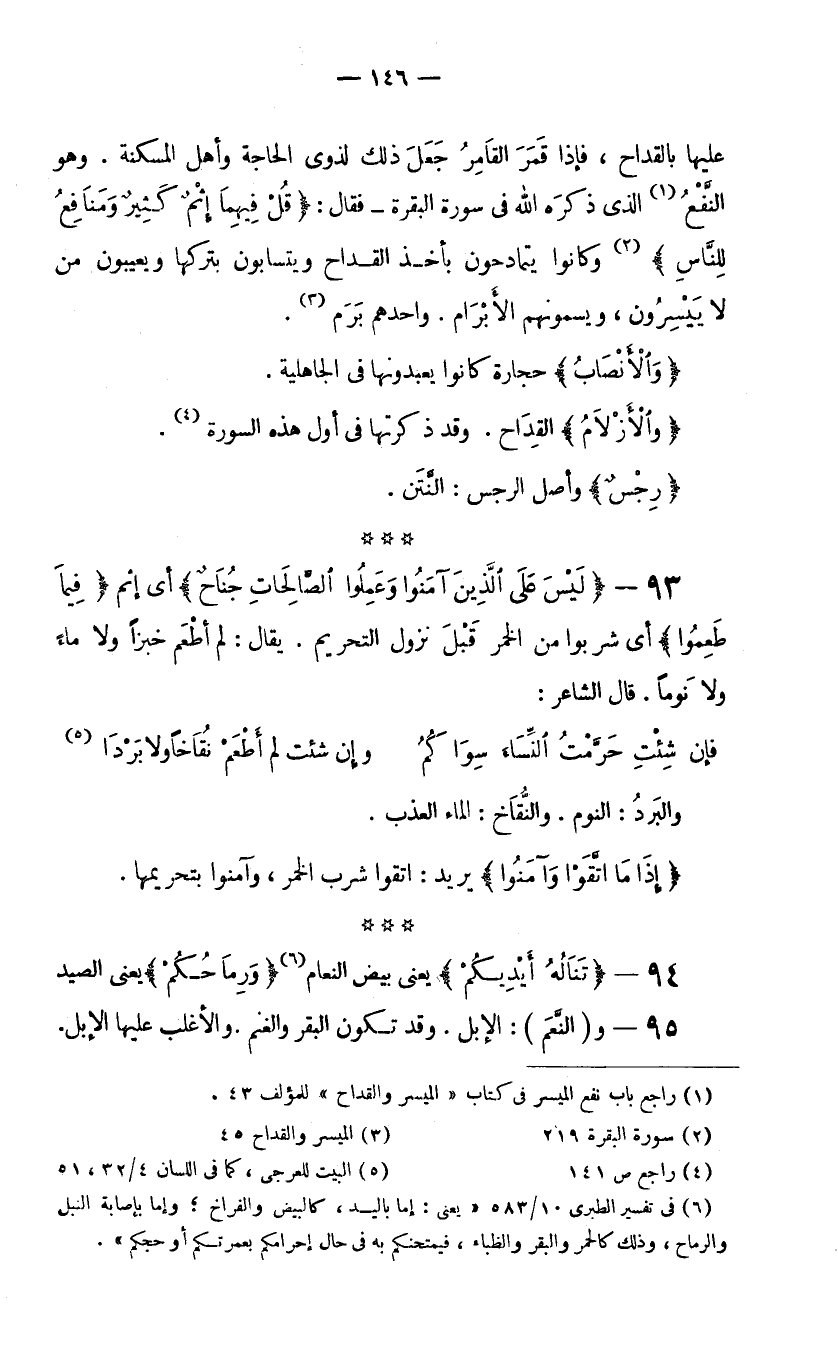 — ١٤٦ —
عليها بالقداح ، فإذا قَمَرَ القَامِرُ جَعَلَ ذلك لذوى الحاجة وأهل المسكنة . وهو
النَّفْعُ (١) الذى ذكرَه الله فى سورة البقرة ــ فقال : ﴿ قُلْ فِيهِمَا إِثْمٌ كَثِيرٌ وَمَنَافِعُ
لِلنَّاسِ ﴾ (٢) وكانوا يتمادحون بأخـذ القـداح ويتسابون بتركها ويعيبون من
لا يَيْسِرُون ، ويسمونهم الأَبْرَام . واحدهم بَرَم (٣) .
﴿ وَٱلْأَنْصَابُ ﴾ حجارة كانوا يعبدونها فى الجاهلية .
﴿ وٱلْأَزْلَامُ ﴾ القِدَاح . وقد ذكرتها فى أول هذه السورة (٤) .
﴿ رِجْسٌ ﴾ وأصل الرجس : النَّتَن .
☆ ☆ ☆
٩٣ — ﴿ لَيْسَ عَلَى ٱلَّذِينَ آمَنُوا وَعَمِلُوا ٱلصَّالِحَاتِ جُنَاحٌ ﴾ أى إثم ﴿ فِيمَا
طَعِمُوا ﴾ أى شربوا من الخمر قَبْلَ نزول التحريم . يقال : لم أطْعَم خبزاً ولا ماءً
ولا نَوماً . قال الشاعر :
فإن شِئْتِ حَرَّمْتُ ٱلنِّسَاءَ سِوَاكُمُ وإن شئت لم أَطْعَمْ نُقَاخًا ولا بَرْدَا (٥)
والبَردُ : النوم . والنُّقَاخ : الماء العذب .
﴿ إِذَا مَا اتَّقَوْا وَآمَنُوا ﴾ يريد : اتقوا شرب الخمر ، وآمنوا بتحريمها .
☆ ☆ ☆
٩٤ — ﴿ تَنَالُهُ أَيْدِيـكُمْ ﴾ يعنى بيض النعام (٦) ﴿ وَرِمَاحُـكُمْ ﴾ يعنى الصيد
٩٥ — و ( النَّعَم ) : الإبل . وقد تـكون البقر والغنم . والأغلب عليها الإبل.
(١) راجع باب نفع الميسر فى كتاب « الميسر والقداح » للمؤلف ٤٣ .
(٢) سورة البقرة ٢١٩ (٣) الميسر والقداح ٤٥
(٤) راجع ص ١٤١ (٥) البيت للعرجى ، كما فى اللسان ٣٢/٤ ، ٥١
(٦) فى تفسير الطبرى ٥٨٣/١٠ « يعنى : إما باليـد ، كالبيض والفراخ ؛ وإما بإصابة النبل
والرماح ، وذلك كالحمر والبقر والظباء ، فيمتحنكم به فى حال إحرامكم بعمرتـكم أو حجكم » .